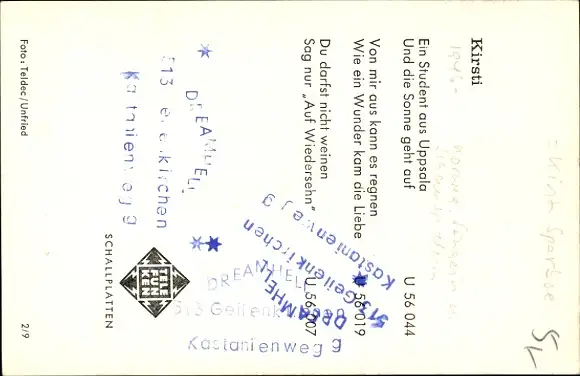 Kirsti
Ein Student aus Uppsala
Und die Sonne geht auf
U 56 044
Von mir aus kann es regnen
Wie ein Wunder kam die Liebe
U 56 019
Du darfst nicht weinen
Sag nur „Auf Wiedersehn"
U 56 007
TELE
FUN
KEN
SCHALLPLATTEN
Foto: Teldec/Unfried
2/9
DREAMHELI
513 Geilenkirchen
Kastanienweg 9
DREAMHELI
513 Geilenkirchen
Kastanienweg 9
DREAMHELI
513 Geilenkirchen
Kastanienweg 9